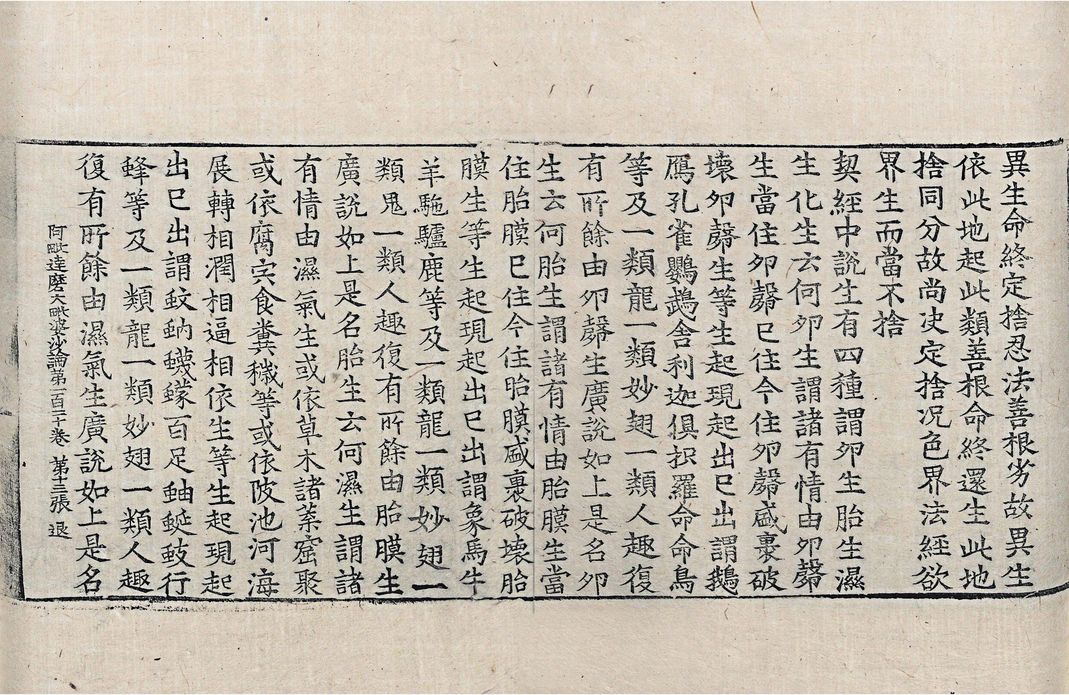 異生命終定捨忍法善根劣故異生
依此地起此類善根命終還生此地
捨同分故尚決定捨况色界法經欲
界生而當不捨
契經中說生有四種謂卵生胎生濕
生化生云何卵生謂諸有情由卵㲉
生當住卵㲉已住今住卵㲉盛裹破
壞卵㲉生等生起現起出已出謂鵝
鴈孔雀鸚鵡舍利迦俱抧羅命命鳥
等及一類龍一類妙翅一類人趣復
有所餘由卵㲉生廣說如上是名卵
生云何胎生謂諸有情由胎膜生當
住胎膜已住今住胎膜盛裹破壞胎
膜生等生起現起出已出謂象馬牛
羊駞驢鹿等及一類龍一類妙翅一
類鬼一類人趣復有所餘由胎膜生
廣說如上是名胎生云何濕生謂諸
有情由濕氣生或依草木諸葉窟聚
或依腐宍食糞穢等或依陂池河海
展轉相潤相逼相依生等生起現起
出已出謂蚊蚋蠛蠓百足蚰蜒蚑行
蜂等及一類龍一類妙翅一類人趣
復有所餘由濕氣生廣說如上是名
阿毗達磨大毗婆沙論第一百二十卷 第十三張 退